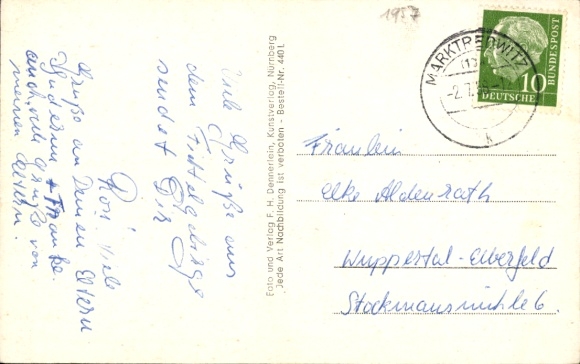 1957
MARKTREDWITZ
-2.7.
k
10
DEUTSCHE
BUNDESPOST
Viele Grüße aus
dem Fichtelgebirge
sendet Dir
Rosi. Viele
Grüße an Deinen Eltern
auch, viele Grüße von
meinen Eltern.
Foto und Verlag F. H. Dennerlein, Kunstverlag, Nürnberg
Jede Art Nachbildung ist verboten - Bestell-Nr. 440 L
Fräulein
Elke Aldenrath
Wuppertal-Elberfeld
Stockmannsmühle 6.